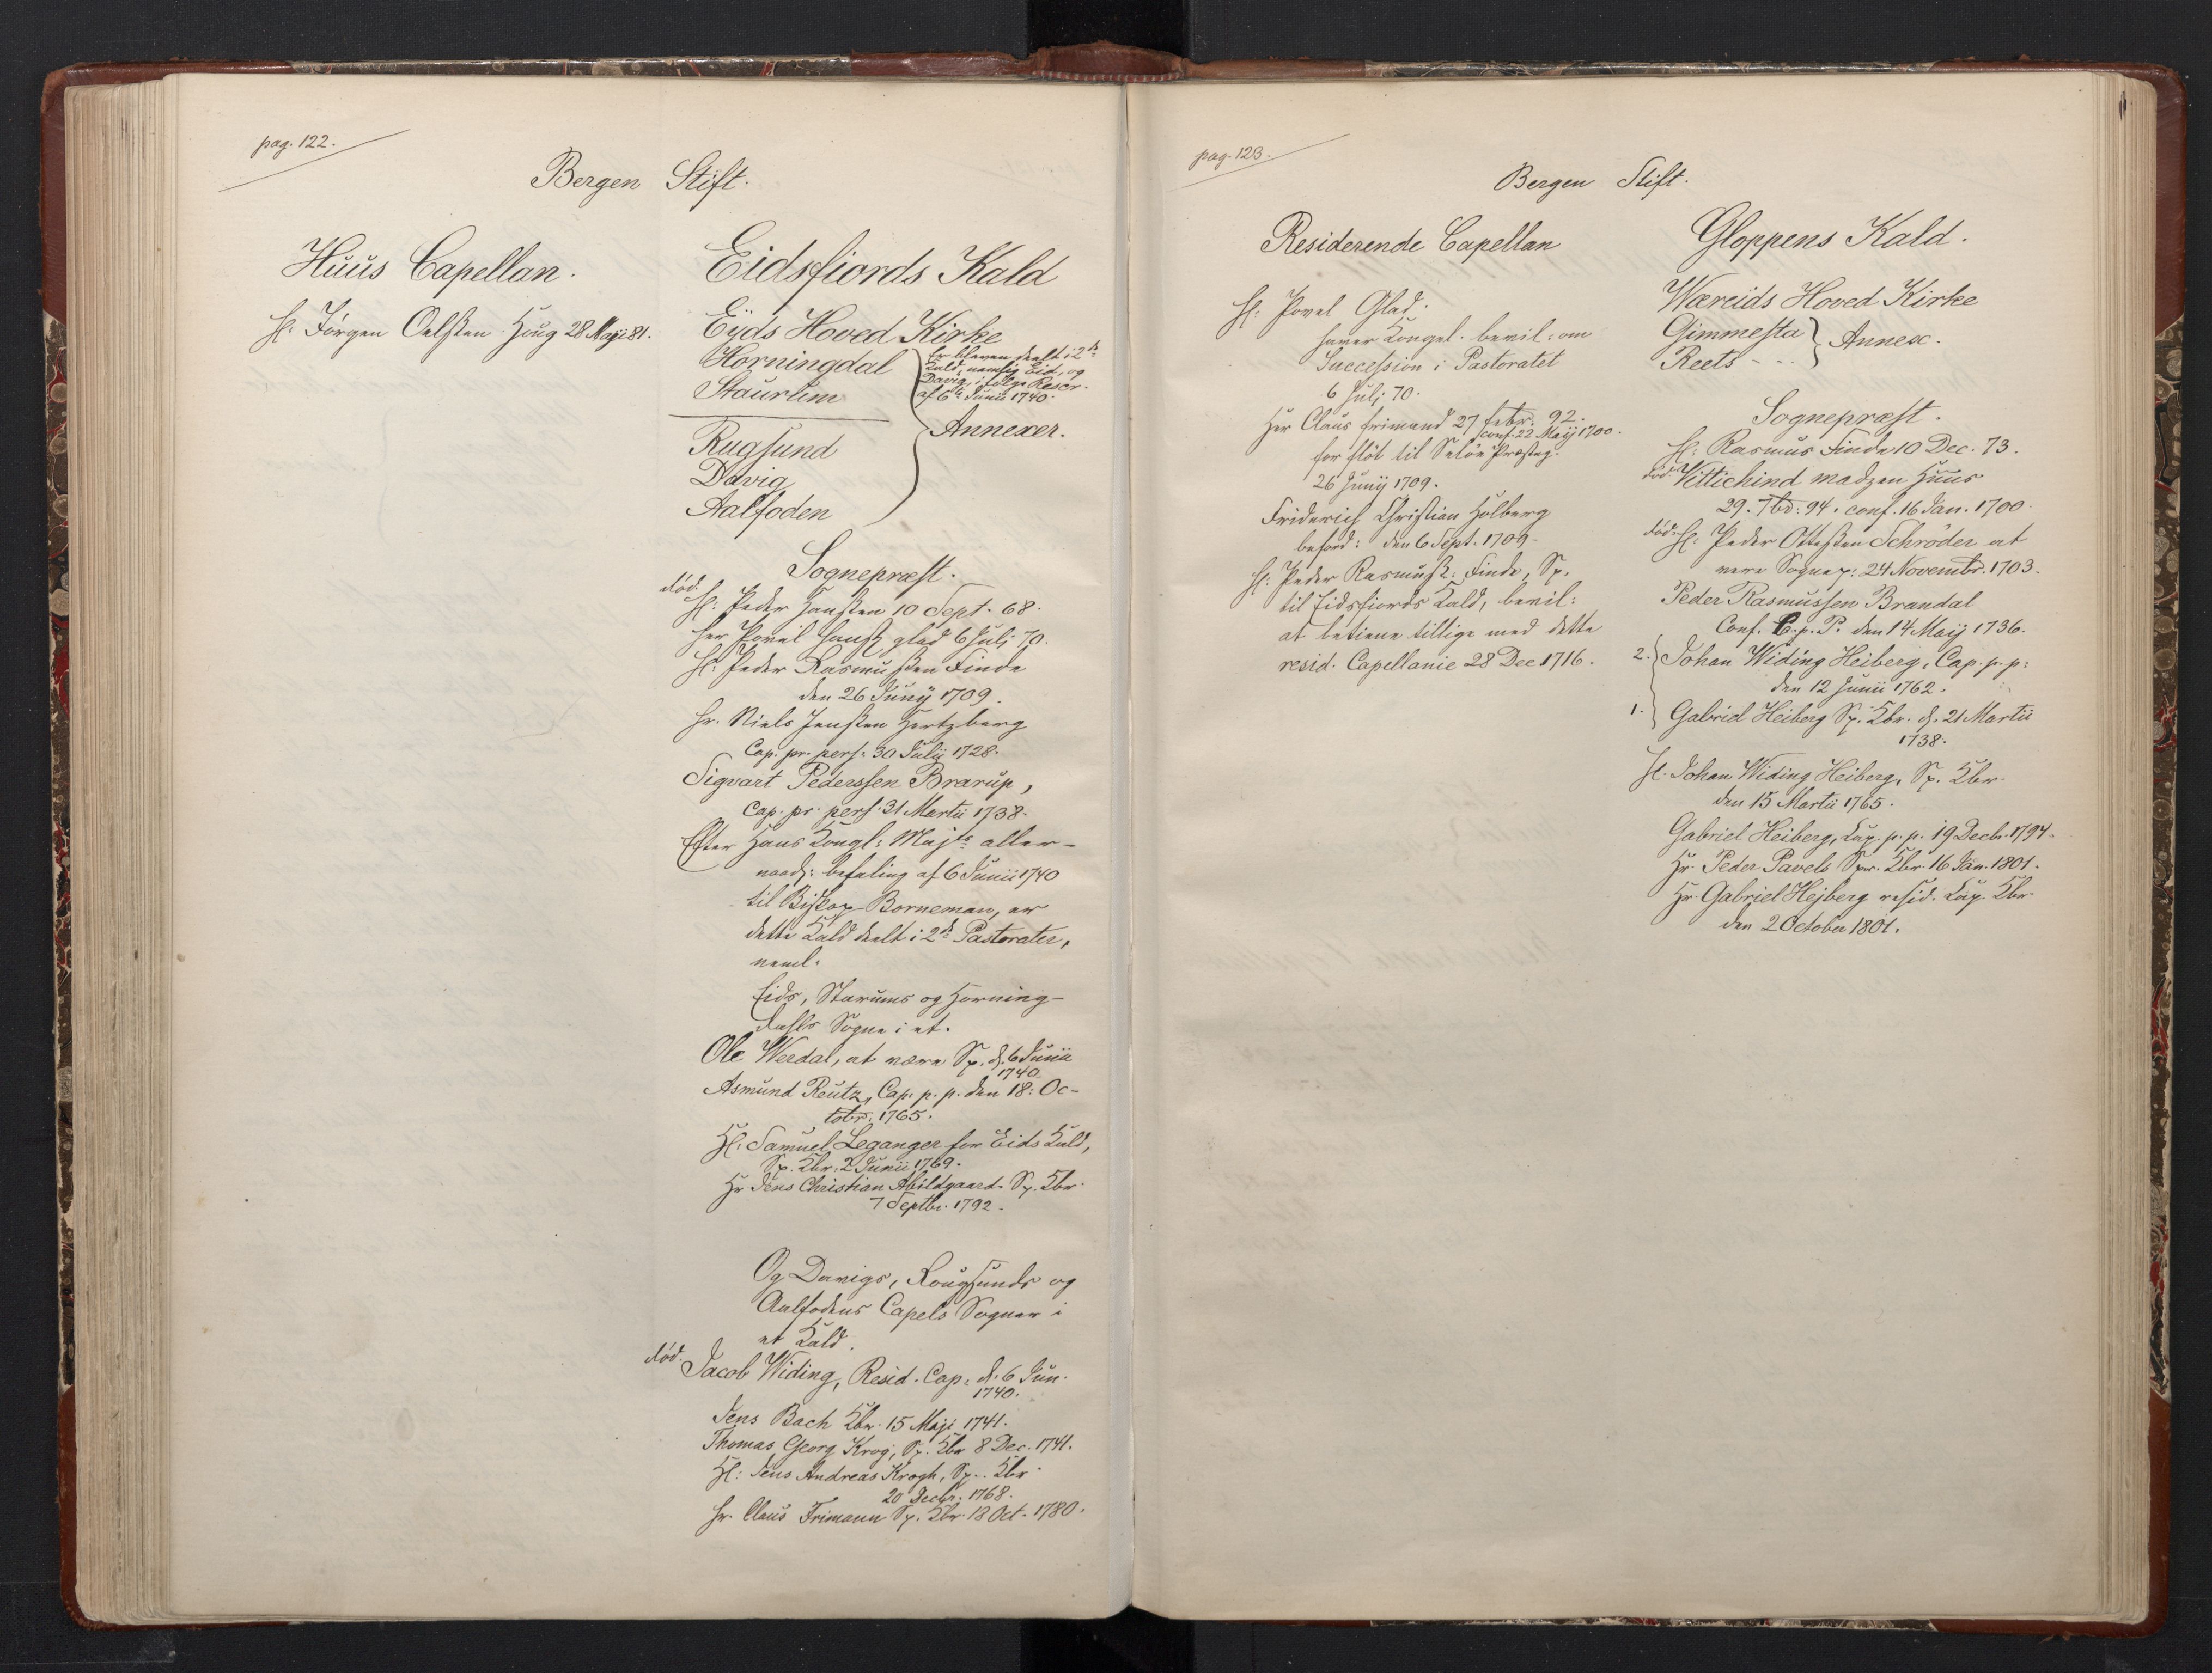 pag. 122.
Bergen Stift.
Huus Capellan.
H: Jörgen Oelssen Houg 28 Maji 81.
Eidsfiords Kald
Eyds Hoved Kirke
Horningdal
Staurhm
Er bleven deelt i 2de
Kald, nemlig Eid, og
Davig, i følge Rescr.
af 6te Junii 1740.
Annexer.
Rugsund
Davig
Aalfoden
Sognepræst.
død.
H: Peder Hanssen 10 Sept. 68.
Her Povel Hanss. glad 6 Julj 70.
H: Peder Rasmussen Finde
den 26 Junij 1709.
Hr. Niels Jenssen Hertzberg
Cap. pr. pers: 30 Julii 1728.
Sigvart Pederssen Brarup,
Cap. pr. pers. 31 Martii 1738.
Efter Hans Kongl: Majts aller-
naads: befaling af 6 Junii 1740
til Biskop Borneman, er
dette Kald deelt i 2de Pastorater,
neml.
Eids, Starums og Horning-
dahls Sogne i et.
Ole Werdal, at være Sp. d. 6 Junii
1740.
Asmund Reutz, Cap. p. p. den 18: Oc-
tobr. 1765.
H: Samuel Leganger for Eids Kald,
Sp. Kbr. 2 Junii 1769.
Hr Jens Christian Abildgaard Sp. Kbr.
7 Septbr. 1792.
Og Davigs, Rougsunds og
Aalfodens Capels Sogner i
et Kald.
død. Jacob Widing, Resid. Cap. d. 6 Jun.
1740.
Jens Bach Kbr. 15 Maji 1741.
Thomas Georg Krog, Sp. Kbr 8 Dec. 1741.
H: Jens Andreas Krogh, Sp. Kbr
20 Decbr. 1768.
Hr. Claus Frimann Sp. Kbr. 18 Oct. 1780.
pag. 123.
Bergen Stift.
Residerende Capellan
H: Povel Glad.
haver Kongel. bevil: om
Succession i Pastoratet
6 Julj 70.
Her Claus frimand 27 febr. 92.
conf. 22 Maij 1700.
for flöt til Selöe Præsteg.
26 Junij 1709.
Friderich Christian Holberg
beford: den 6 Sept. 1709.
H: Peder Rasmuss: Finde, Sp.
til Eidsfiords Kald, bevil:
at betiene tillige med dette
resid. Capellanie 28 Dec 1716.
Gloppens Kald.
Wereids Hoved Kirke
Gimmesta
Reets - - -
Annex.
Sognepræst.
H: Rasmus Finde 10 Dec. 73.
død Vittichind madzen Huus
29. 7br: 94. conf. 16 Jan. 1700.
død. H: Peder Ottessen Schröder at
være Sognep: 24 Novembr. 1703.
Peder Rasmussen Brandal
Conf. C. p. P. den 14 Maij 1736.
2. Johan Widing Heiberg, Cap. p. p:
den 12 Junii 1762.
1. Gabriel Heiberg Sp. Kbr. d. 21 Martii
1738.
H. Johan Widing Heiberg, Sp. Kbr.
den 15 Martii 1765.
Gabriel Heiberg, Cap. p. p. 19 Decbr. 1794.
Hr Peder Pavels Spr. Kbr 16 Jan. 1801.
Hr. Gabriel Hejberg resid. Cap. Kbr.
den 2 October 1801.